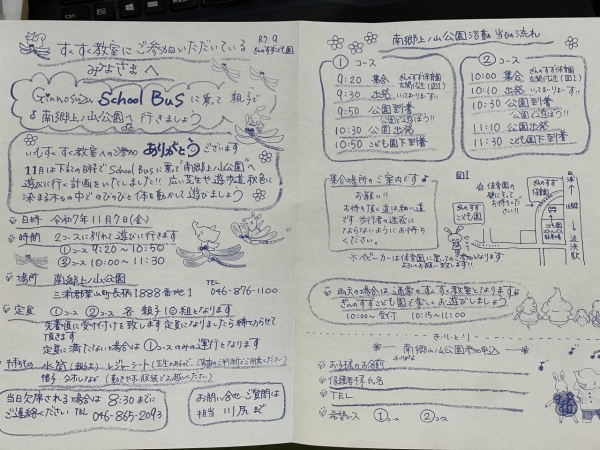 R7.9
ぎんのすずこども園
すくすく教室にご参加いただいている
みなさまへ
Ginnosuzu School Busに乗って 親子で
南郷上ノ山公園へ 行きましょう
いつもすくすく教室へのご参加 ありがとうございます
11月は下記の日程で School Busに乗って“南郷上ノ山公園”へ
遊びに行く計画をいたしました!! 広い芝生や遊歩道、秋色に
染まる木々の中でのびのびと体を動かして遊びましょう
日時 令和7年11月7日(金)
時間 2コースに別れて遊びに行きます
①コース 9:20～10:50
②コース 10:00～11:30
場所 南郷上ノ山公園
三浦郡葉山町長柄1888番地1
TEL 046-876-1100
定員 ①コース ②コース 各 親子⑩組となります
先着順に受け付けを致します 定員になりましたら締め切らせて
頂きます
定員に満たない場合は①コースのみの運行となります
水筒 レジャーシート
帽子 タオルなど (動きやすい服装でお越しください)
当日欠席される場合は 8:30までに
ご連絡ください TEL 046-865-2093
お問い合せ・ご質問は
担当 川尻まで
南郷上ノ山公園活動 当日の流れ
①コース
9:20 集合 ぎんのすず保育園
玄関付近(図1)
9:30 出発 いってまいりまーす!!
9:50 公園到着
公園でお遊び!!
10:30 公園出発
10:50 こども園下到着
②コース
10:00 集合 ぎんのすず保育園
玄関付近(図1)
10:10 出発 いってまいりまーす!!
10:30 公園到着
公園でお遊び!!
11:10 公園出発
11:30 こども園下到着
集合場所のご案内です
お願い!!
お待ち頂く道は細い道
です 歩行者の迷惑に
ならないようにお待ち
ください。
※ベビーカーは保育園に置いてのご参加となります
よろしくお願い致します!!
図1
ぎんのすず
保育園
ぎんのすず
こども園
追浜駅
雨天の場合は通常のすくすく教室となります
ぎんのすずこども園で楽しくお遊びしましょう
10:00～受付 10:15～11:00
き・り・と・り
南郷上ノ山公園参加申込
お子様のお名前
ふりがな
保護者様氏名
TEL
希望コース ①コース ②コース